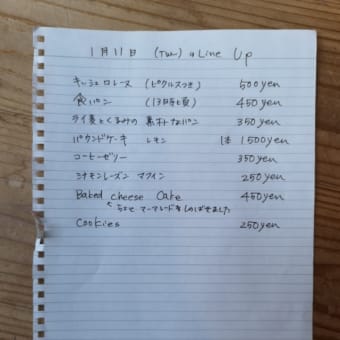 1月11日 (Tue) の Line Up
キッシュロレーヌ (ピクルスつき) 500yen
食パン (13時頃) 450yen
ライ麦とくるみの素朴なパン 350yen
パウンドケーキ レモン 1本 1500yen
コーヒーゼリー 350yen
シナモンレーズン マフィン 250yen
Baked cheese Cake 450yen
ちょこっとマーマレードをしのばせました
Cookies 250yen